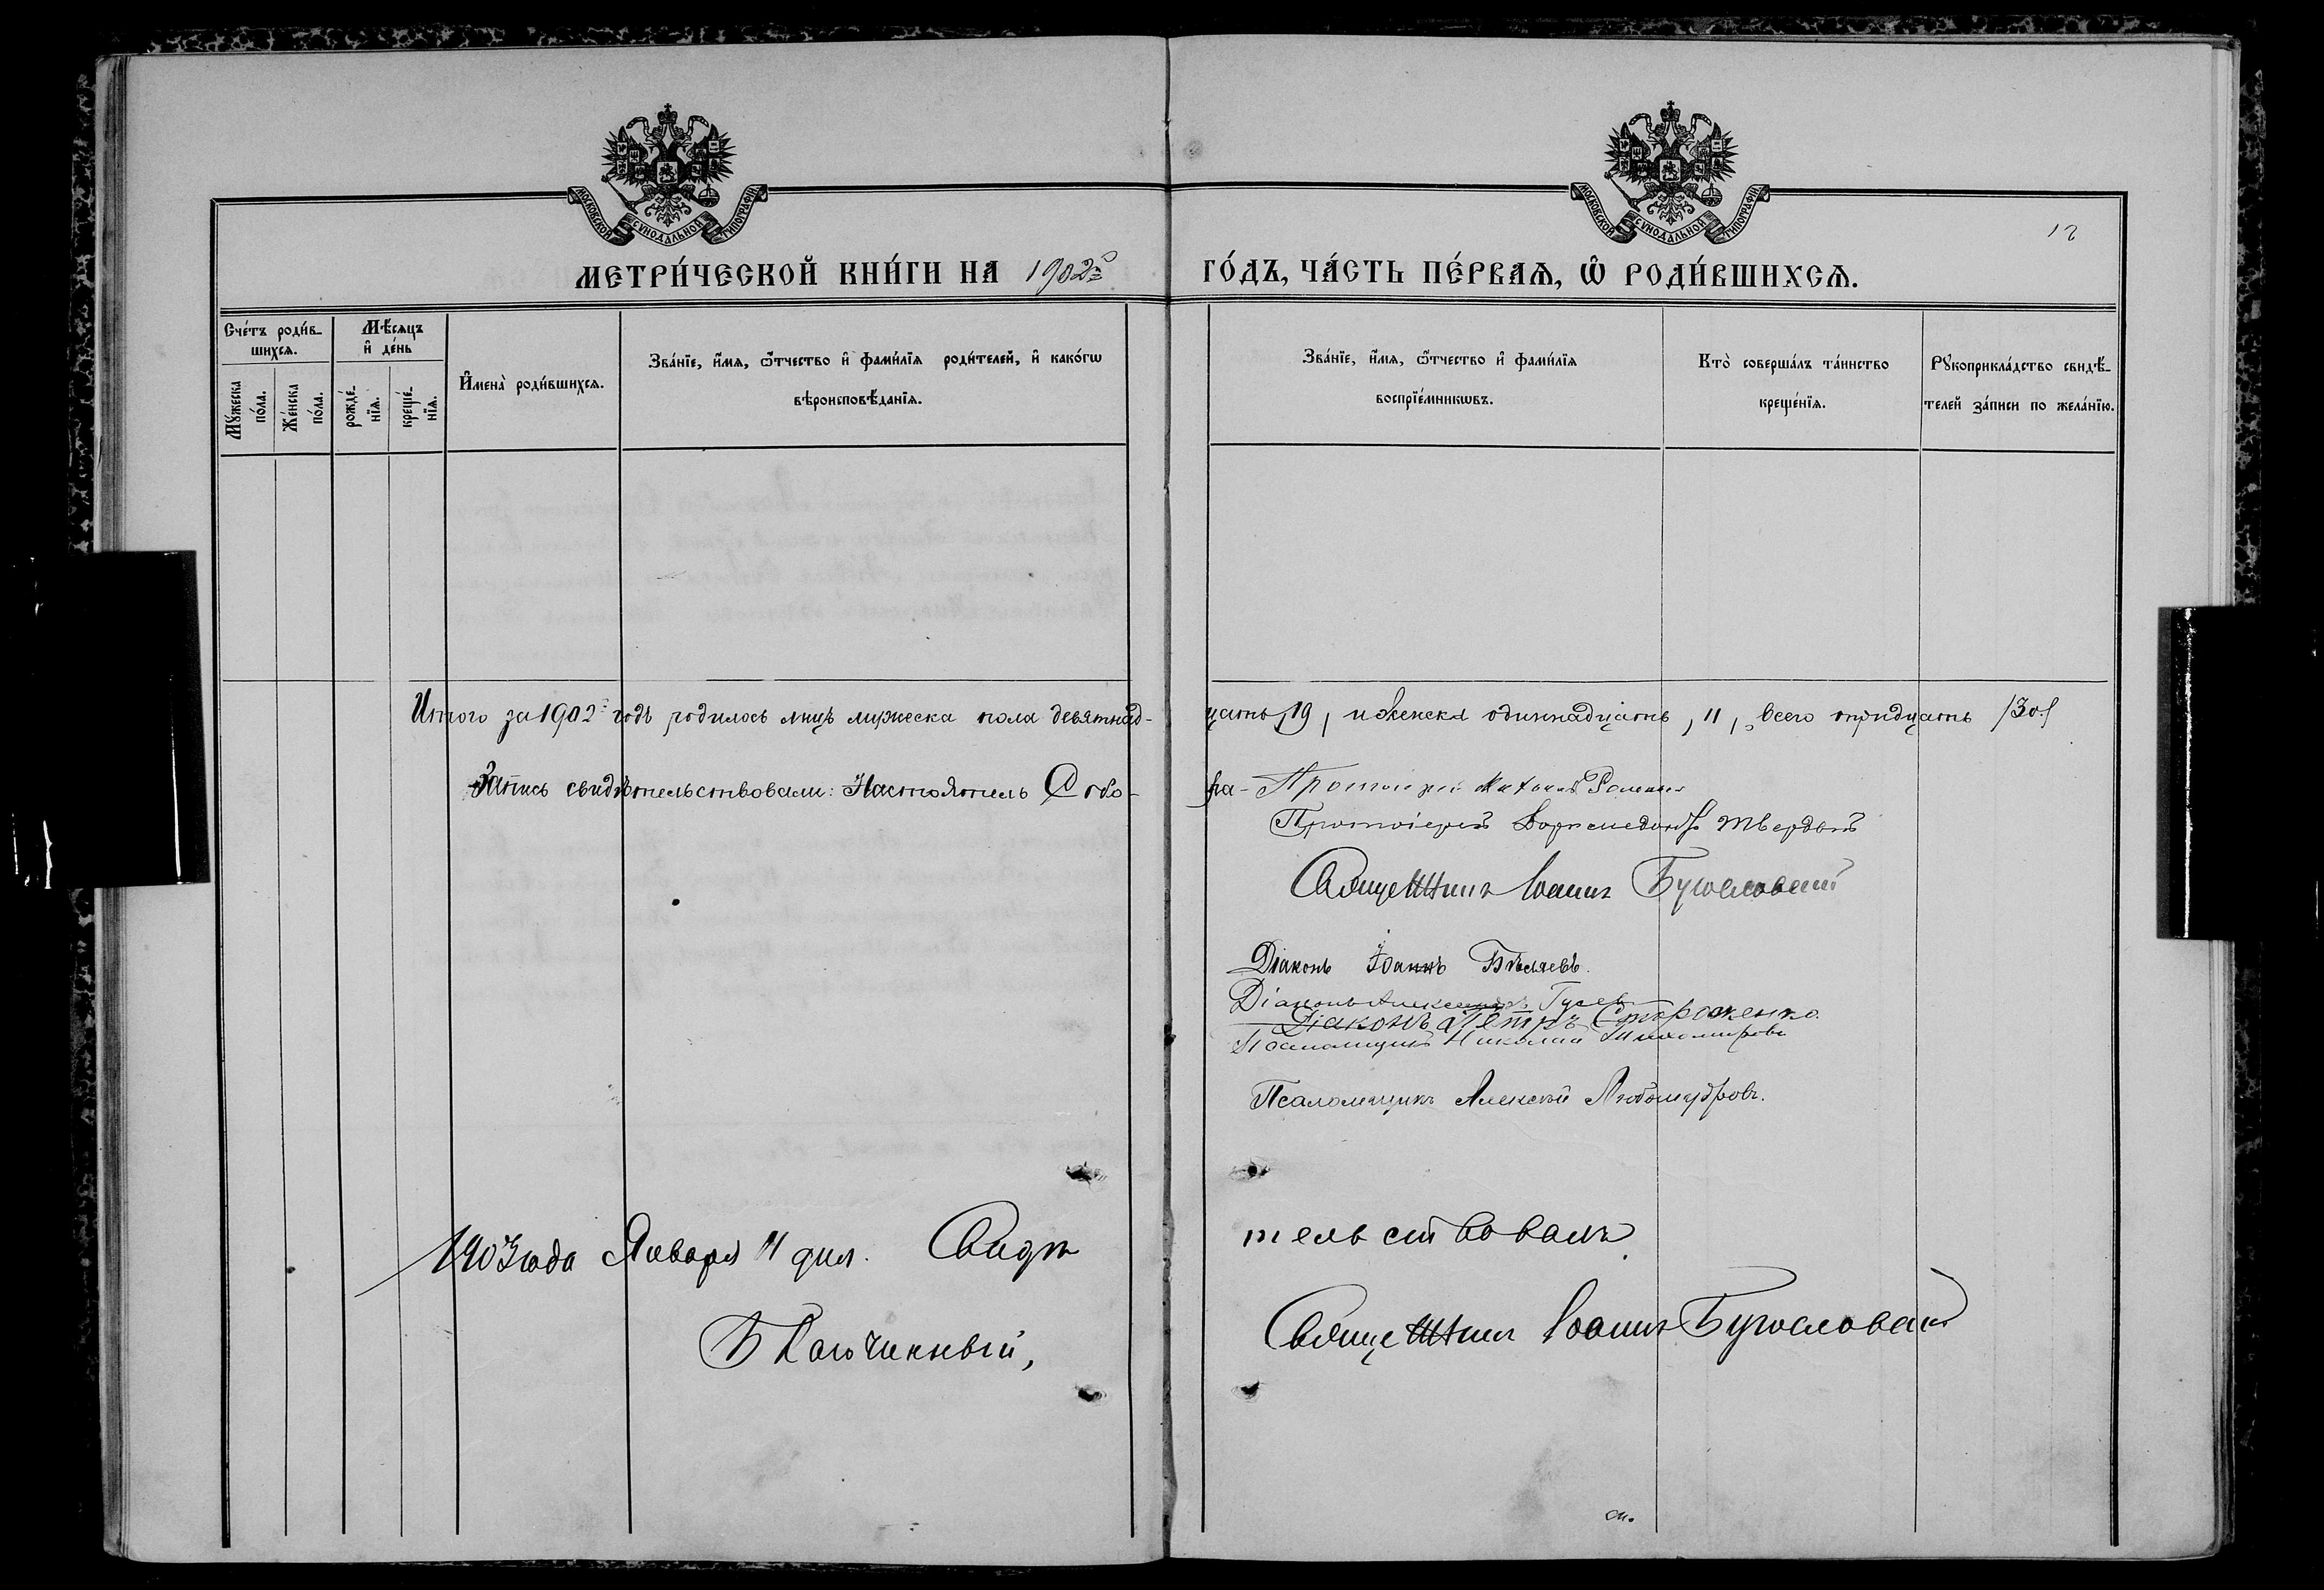 МОСКОВСКОЙ СѴНОДАЛЬНОЙ ТИПОГРАФІИ
МОСКОВСКОЙ СѴНОДАЛЬНОЙ ТИПОГРАФІИ
12
МЕТРИ́ЧЕСКОЙ КНИ́ГИ НА 1902й
ГО́ДЪ, ЧА́СТЬ ПЕ́РВАѦ, Ѡ҆ РОДИ́ВШИХСѦ.
Сче́тъ роди́в-
шихсѧ.
Мѣ́сѧцъ
и҆ де́нь
Мꙋ́жеска
по́ла.
Же́нска
по́ла.
рожде́-
нїѧ.
креще́-
нїѧ.
И҆мена̀ роди́вшихсѧ.
Зва́нїе, и҆́мѧ, ѻ҆́тчество и҆ фами́лїѧ роди́телей, и҆ како́гѡ
вѣроисповѣ́данїѧ.
Зва́нїе, и҆́мѧ, ѻ҆́тчество и҆ фами́лїѧ
воспрїе́мникѡвъ.
Кто̀ соверша́лъ та́инство
креще́нїѧ.
Рꙋкоприкла́дство свидѣ́-
телей за́писи по жела́нїю.
Итого за 1902й годъ родилось лицъ мужеска пола девятнад-
цать, 19, и женска одиннадцать, 11, всего тридцать /30./
Запись свидѣтельствовали: Настоятель Собо-
ра - Протоіерей
Протоіерей Твердый
Священникъ Іоаннъ
Діаконъ Іоаннъ Бѣляевъ.
Діаконъ Александръ Гусевъ
Діаконъ Петръ Стороженко.
Псаломщикъ Николай Тихомировъ
Псаломщикъ Алексѣй Любомудровъ.
1903 года Января 11 дня. Свидѣ
тельствовалъ
Благочинный,
Священникъ Іоаннъ